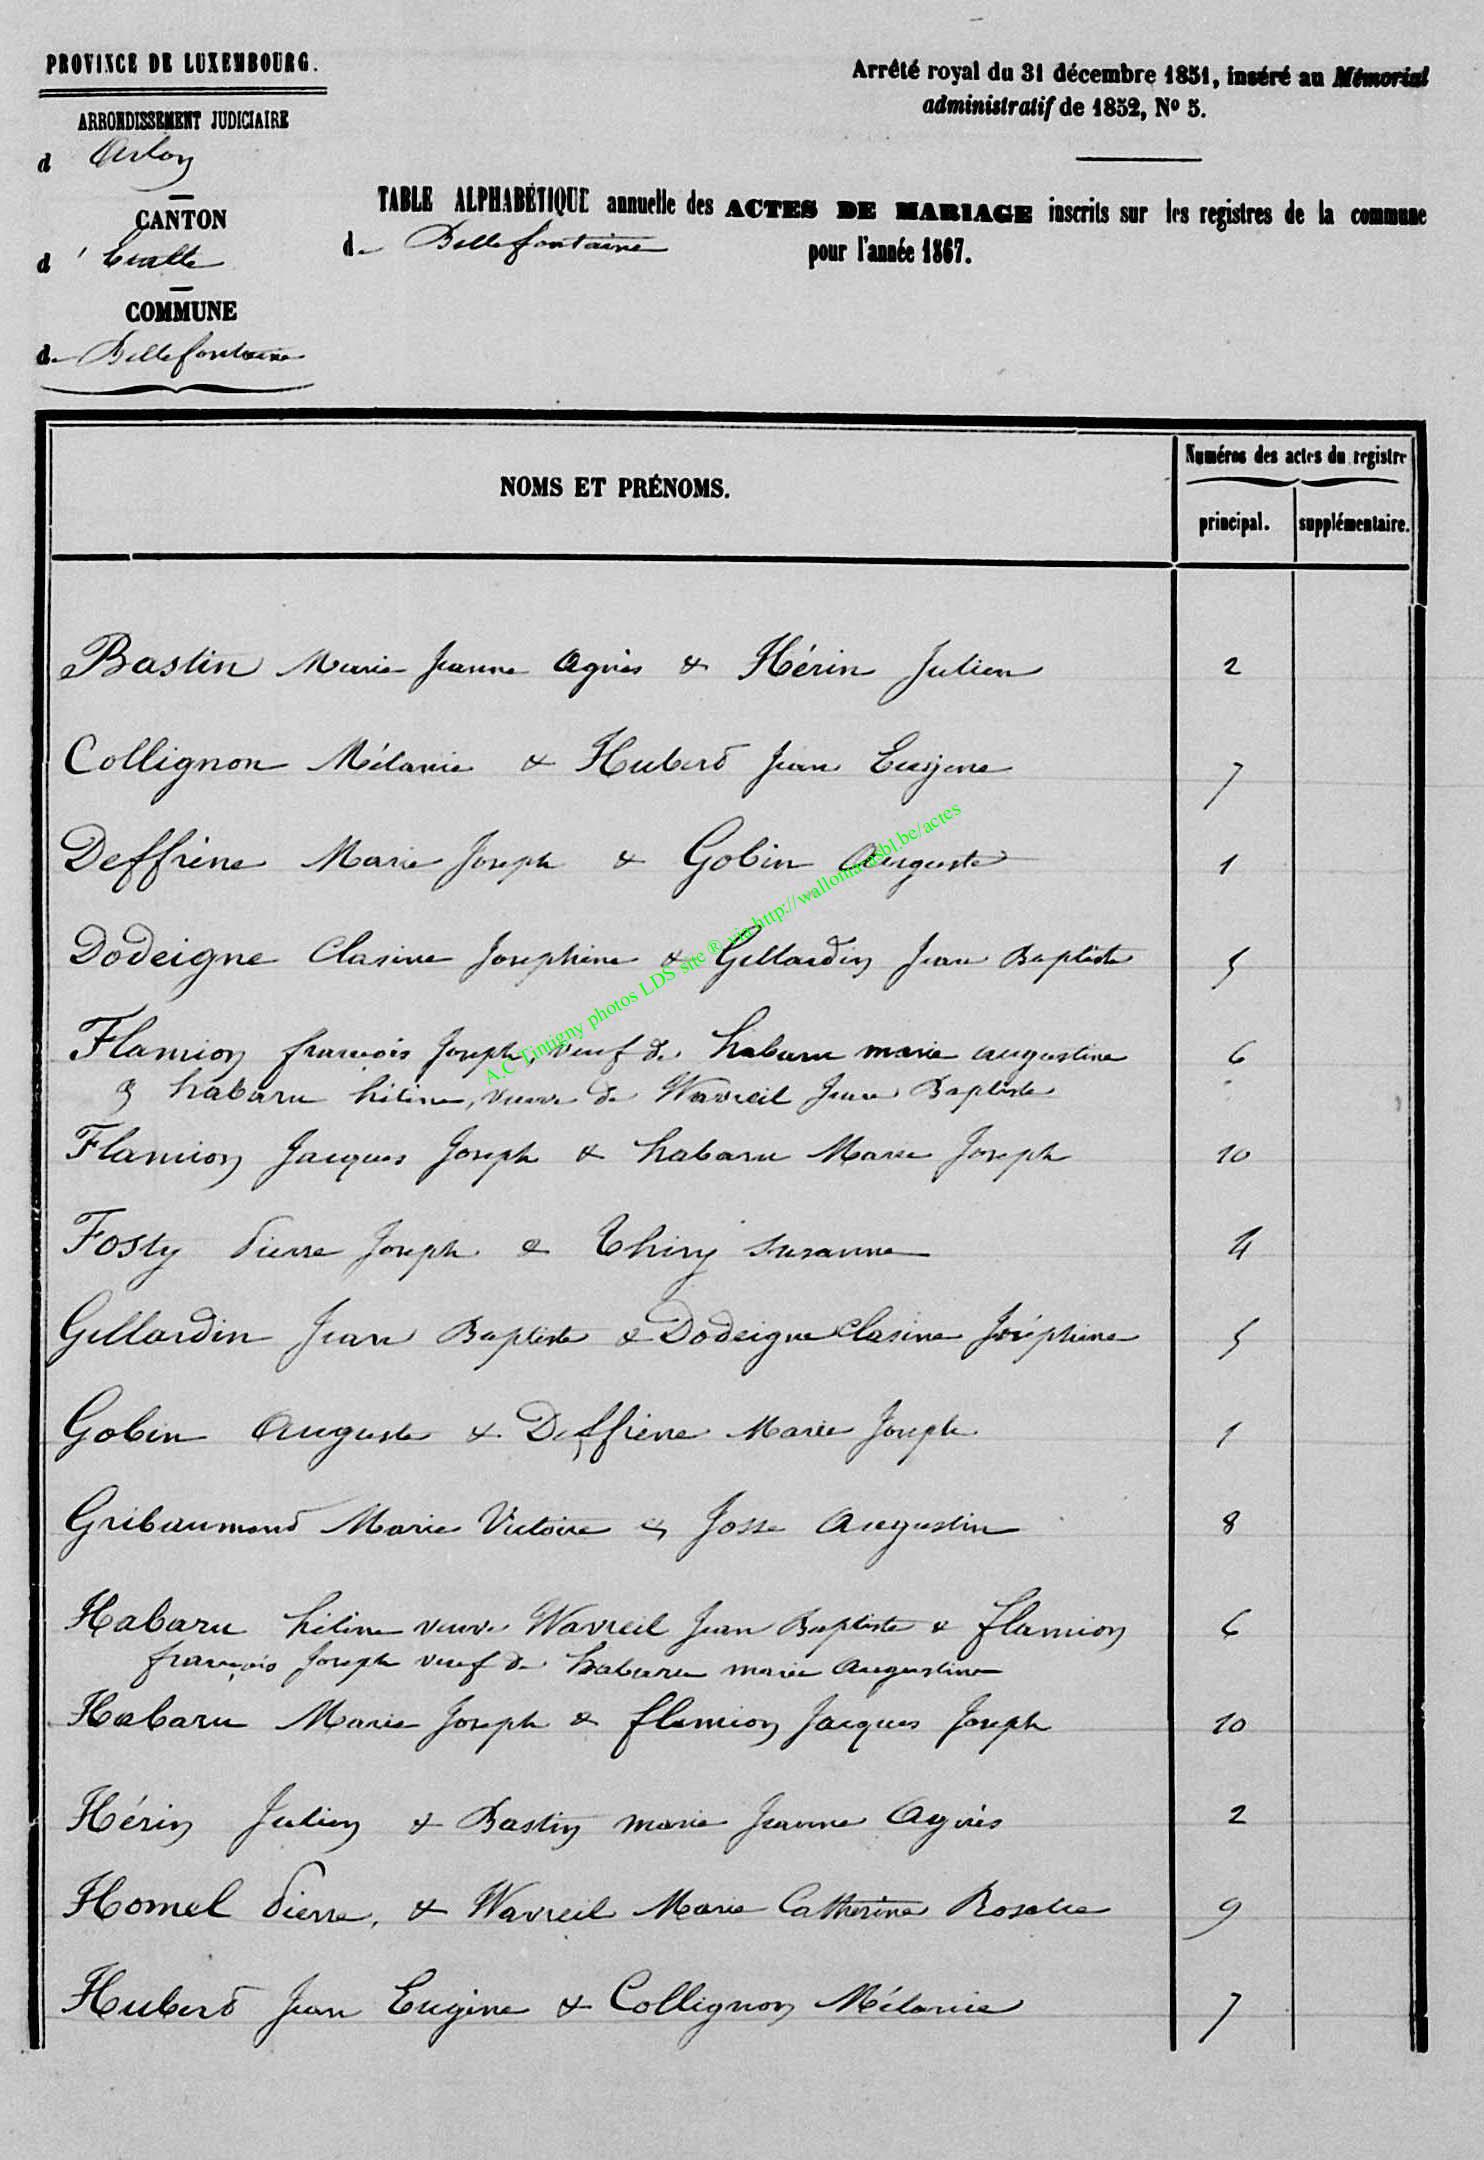 PROVINCE DE LUXEMBOURG.
ARRONDISSEMENT JUDICIAIRE
d Arlon
CANTON
d' Etalle
COMMUNE
de Bellefontaine
Arrêté royal du 31 décembre 1851, inséré au Mémorial
administratif de 1852, No 5.
TABLE ALPHABÉTIQUE annuelle des ACTES DE MARIAGE inscrits sur les registres de la commune
de Bellefontaine pour l'année 1867.
NOMS ET PRÉNOMS.
Numéros des actes du registre
principal. supplémentaire.
Bastin Marie Jeanne Agnès & Hérin Julien 2
Collignon Mélanie & Hubert Jean Eugene 7
Deffrène Marie Joseph & Gobin Auguste 1
Dodeigne Clasine Josephine & Gillardin Jean Baptiste 5
Flamion françois Joseph, veuf de habaru marie augustine 6
& habaru hélène, veuve de Wavreil Jean Baptiste
Flamion Jacques Joseph & habaru Marie Joseph 10
Fosty Pierre Joseph & Thiry Susanne 4
Gillardin Jean Baptiste & Dodeigne Clasine Joséphine 5
Gobin Auguste & Deffrène Marie Joseph 1
Gribaumont Marie Victoire & Josse Augustin 8
Habaru hélène veuve Wavreil Jean Baptiste & flamion 6
françois Joseph veuf de habaru marie Augustine
Habaru Marie Joseph & flamion Jacques Joseph 10
Hérin Julien & Bastin marie Jeanne Agnès 2
Homel Pierre, & Wavreil Marie Catherine Rosalie 9
Hubert Jean Eugène & Collignon Mélanie 7
A.C Tintigny photos LDS site ® via http://wallonia-asbl.be/actes